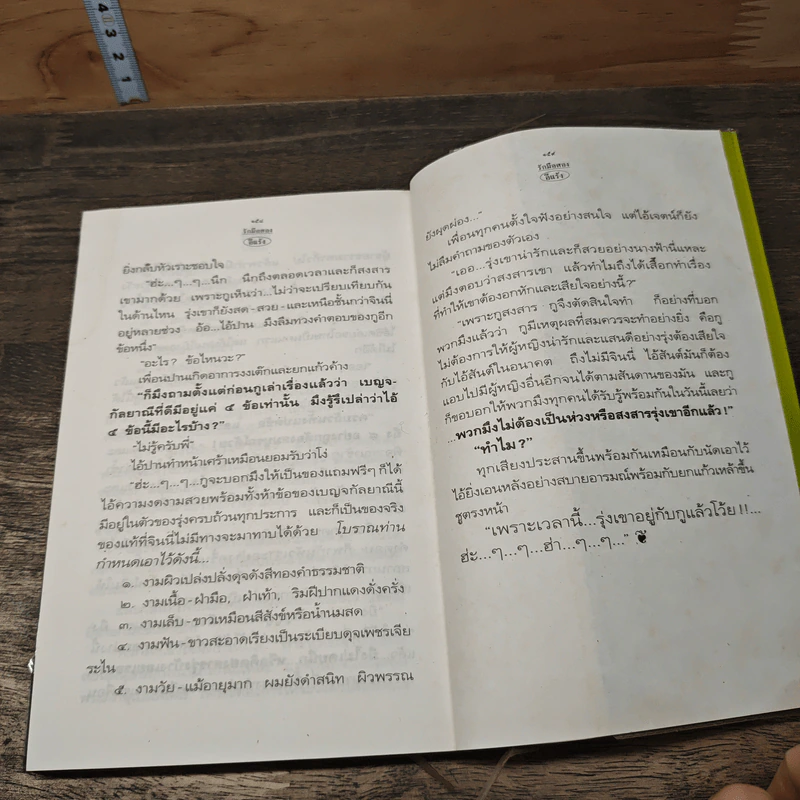 4
3
2
1
๑๕๘
รักมือสอง
อีแร้ง
ยิ่งกลับหัวเราะชอบใจ
"ฮ่ะ...ๆ...ๆ...นึก นึกถึงตลอดเวลาและก็สงสาร
เขามากด้วย เพราะกูเห็นว่า...ไม่ว่าจะเปรียบเทียบกัน
ในด้านไหน รุ่งเขาก็ยังสด-สวย-และเหนือชั้นกว่าจินนี่
อยู่หลายช่วง อ้อ...ไอ้ปาน มึงลืมทวงคำตอบของกูอีก
ข้อหนึ่ง"
"อะไร? ข้อไหนวะ?"
เพื่อนปานเกิดอาการงงเต๊กและยกแก้วค้าง
"ก็มึงถามตั้งแต่ก่อนกูเล่าเรื่องแล้วว่า เบญจ-
กัลยาณีที่ดีมีอยู่แค่ ๔ ข้อเท่านั้น มึงรู้รึเปล่าว่าไอ้
๔ ข้อนี้มีอะไรบ้าง?"
"ไม่รู้ครับพี่"
ไอ้ปานทำหน้าเศร้าเหมือนยอมรับว่าโง่
"ฮ่ะ...ๆ...ๆ...กูจะบอกมึงให้เป็นของแถมฟรีๆ ก็ได้
ไอ้ความงดงามสวยพร้อมทั้งห้าข้อของเบญจกัลยาณีนี้
มีอยู่ในตัวของรุ่งครบถ้วนทุกประการ และก็เป็นของจริง
ของแท้ที่จินนี่ไม่มีทางจะมาทาบได้ด้วย โบราณท่าน
กำหนดเอาไว้ดังนี้...
๑. งามผิวเปล่งปลั่งดุจดังสีทองคำธรรมชาติ
๒. งามเนื้อ-ฝ่ามือ, ฝ่าเท้า, ริมฝีปากแดงดั่งครั่ง
๓. งามเล็บ-ขาวเหมือนสีสังข์หรือน้ำนมสด
๔. งามฟัน-ขาวสะอาดเรียงเป็นระเบียบดุจเพชรเจีย
ระไน
๕. งามวัย-แม้อายุมาก ผมยังดำสนิท ผิวพรรณ
๑๕๙
รักมือสอง
อีแร้ง
ยังผุดผ่อง..."
เพื่อนทุกคนตั้งใจฟังอย่างสนใจ แต่ไอ้เจตน์ก็ยัง
ไม่ลืมคำถามของตัวเอง
"เออ...รุ่งเขาน่ารักและก็สวยอย่างนางฟ้านี่แหละ
แต่มึงตอบว่าสงสารเขา แล้วทำไมถึงได้เสือกทำเรื่อง
ที่ทำให้เขาต้องอกหักและเสียใจอย่างนี้?"
"เพราะกูสงสาร กูจึงตัดสินใจทำ ก็อย่างที่บอก
พวกมึงแล้วว่า กูมีเหตุผลที่สมควรจะทำอย่างยิ่ง คือกู
ไม่ต้องการให้ผู้หญิงน่ารักและแสนดีอย่างรุ่งต้องเสียใจ
กับไอ้สันต์ในอนาคต ถึงไม่มีจินนี่ ไอ้สันต์มันก็ต้อง
แอบไปมีผู้หญิงอื่นอีกจนได้ตามสันดานของมัน และกู
ก็ขอบอกให้พวกมึงทุกคนได้รับรู้พร้อมกันในวันนี้เลยว่า
...พวกมึงไม่ต้องเป็นห่วงหรือสงสารรุ่งเขาอีกแล้ว!"
"ทำไม?"
ทุกเสียงประสานขึ้นพร้อมกันเหมือนกับนัดเอาไว้
ไอ้ยิ่งเอนหลังอย่างสบายอารมณ์พร้อมกับยกแก้วเหล้าขึ้น
ชูตรงหน้า
"เพราะเวลานี้...รุ่งเขาอยู่กับกูแล้วโว้ย!!...
ฮ่ะ...ๆ...ๆ...ฮ่า...ๆ...ๆ..."